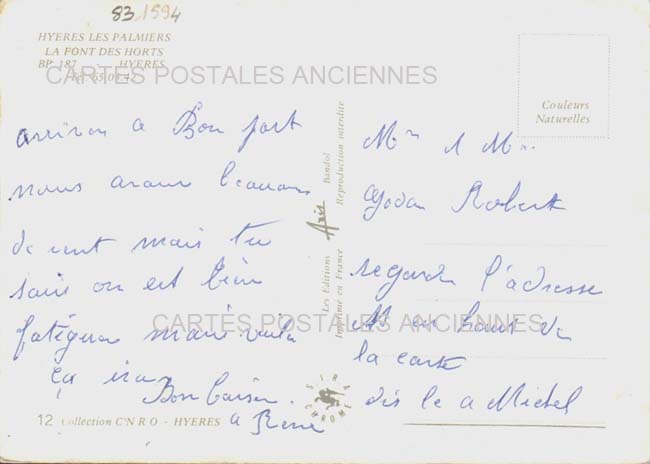 83 1594
HYERES LES PALMIERS
LA FONT DES HORTS
BP 187 HYERES
Tél. 65.03.42
CARTES POSTALES ANCIENNES
Couleurs
Naturelles
arrivon a Bon port
nous avons beaucou
de vent mais tu
sais on est bien
fatéguer mais voila
ça ira
Bon baiser.
a René
Les Editions Aris Bandol
Imprimé en France Reproduction interdite
Mr & Mme
Robert
regarde l'adresse
en haut de
la carte
dis le a Michel
CARTES POSTALES ANCIENNES
SIRA CHROME
12 Collection C'N R O - HYERES